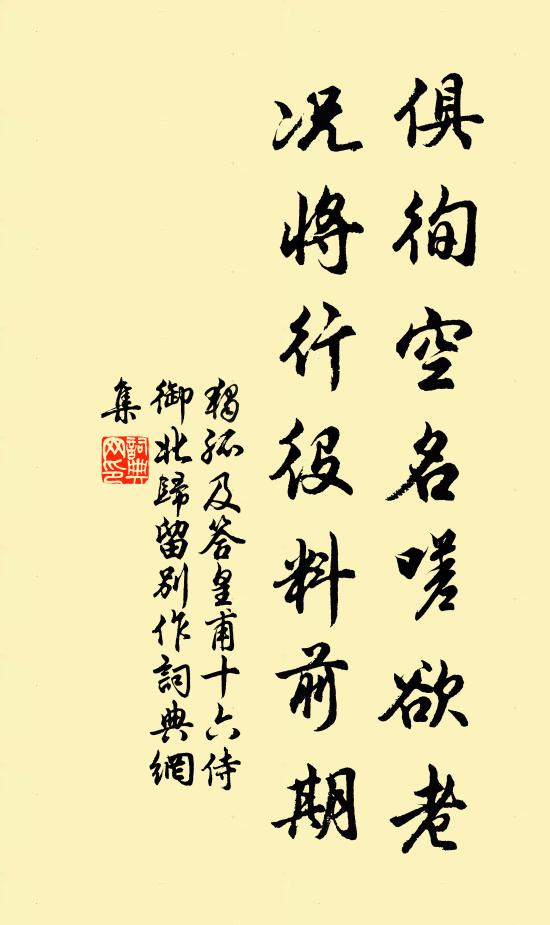 俱徇空名嗟欲老
况將行役料前期
獨孤及答皇甫十六侍
御北歸留別作詞典網
集
詞典網印